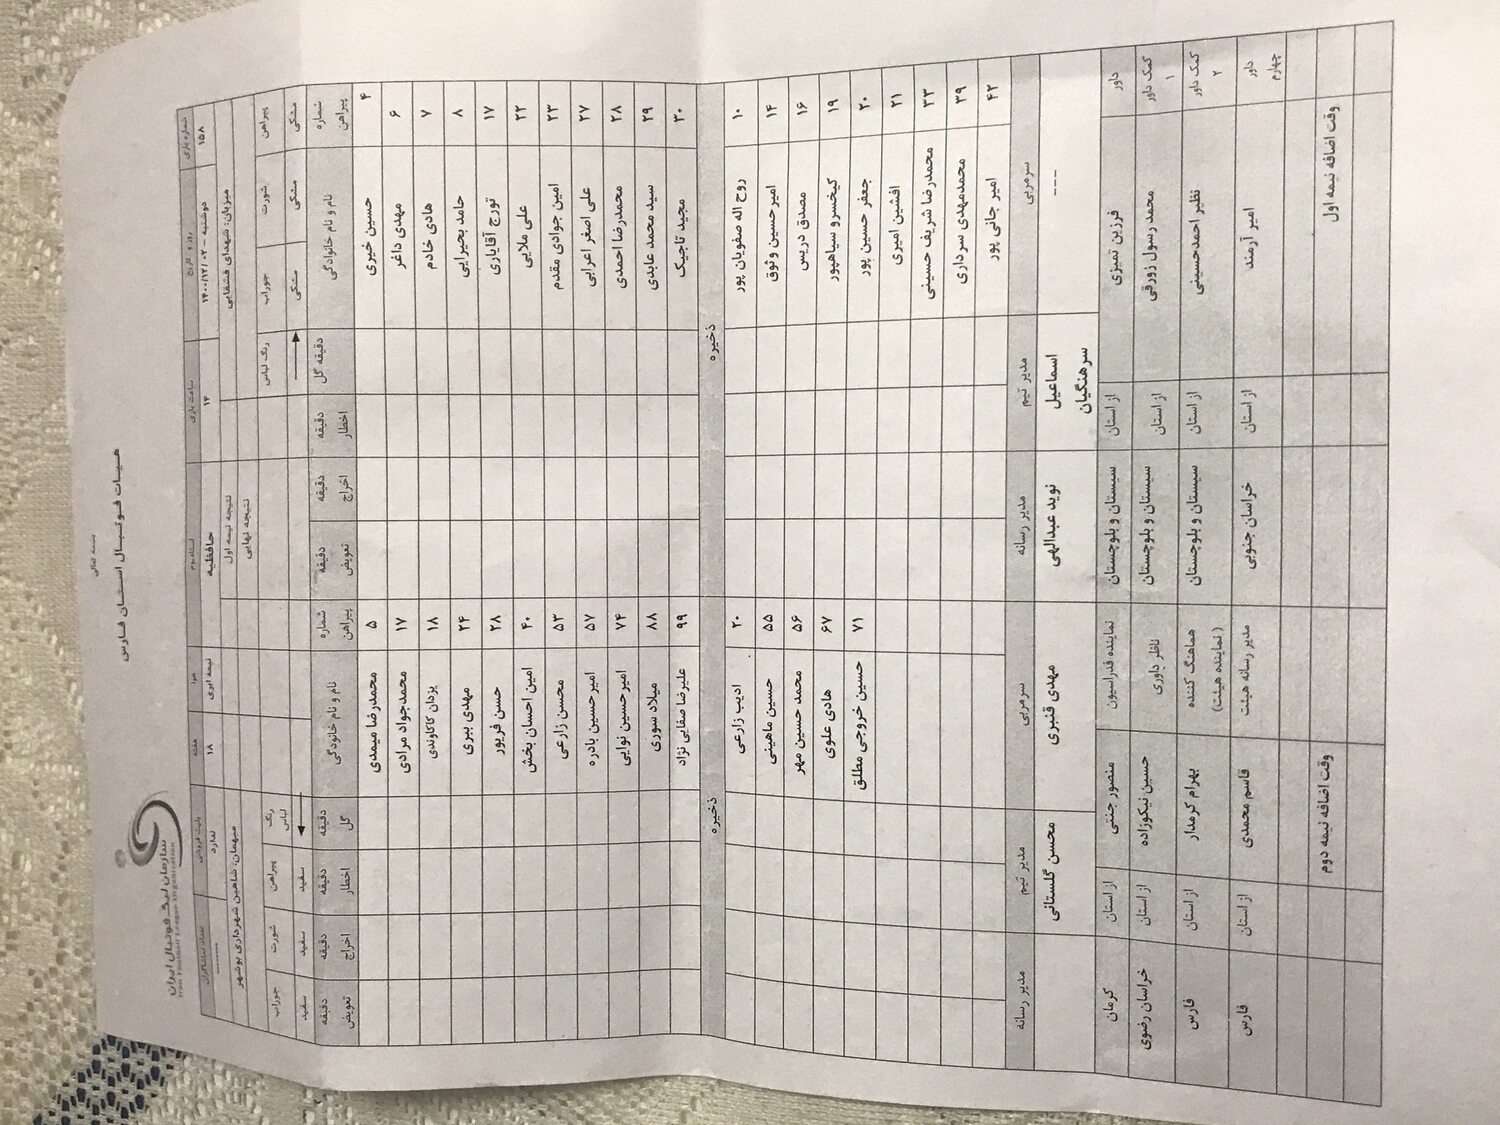 بسمه تعالی
هیات فوتبال استان فارس
سازمان لیگ فوتبال ایران
Iran Football League Organization
شماره بازی روز و تاریخ ساعت بازی استادیوم هوا هفته بلیت فروشی تعداد تماشاگران
۱۵۸ دوشنبه - ۱۴۰۰/۱۲/۰۲ ۱۴ حافظیه نیمه ابری ۱۸ ندارد --------
میزبان: شهدای قشقایی نتیجه نیمه اول میهمان: شاهین شهرداری بوشهر
نتیجه نهایی
پیراهن شورت جوراب رنگ لباس رنگ لباس پیراهن شورت جوراب
مشکی مشکی مشکی سفید سفید سفید
شماره پیراهن نام و نام خانوادگی دقیقه گل دقیقه اخطار دقیقه اخراج دقیقه تعویض شماره پیراهن نام و نام خانودگی دقیقه گل دقیقه اخطار دقیقه اخراج دقیقه تعویض
۴ حسین خیری ۵ محمدرضا میمدی
۶ مهدی داغر ۱۷ محمدجواد مرادی
۷ هادی خادم ۱۸ یزدان کاکاوندی
۸ حامد بحیرایی ۲۴ مهدی ببری
۱۷ تورج آقایاری ۲۸ حسن فریور
۲۲ علی ملایی ۴۰ امین احسان بخش
۲۳ امین جوادی مقدم ۵۳ محسن زارعی
۲۷ علی اصغر اعرابی ۵۷ امیر حسین بادره
۲۸ محمدرضا احمدی ۷۴ امیر حسین نوایی
۲۹ سید محمد عابدی ۸۸ میلاد سوری
۳۰ مجید تاجیک ۹۹ علیرضا صفایی نژاد
ذخیره ذخیره
۱۰ روح اله صفویان پور ۲۰ ادیب زارعی
۱۴ امیر حسین وثوق ۵۵ حسین ماهینی
۱۶ مصدق دریس ۵۶ محمد حسین مهر
۱۹ کیخسرو سیاهپور ۶۷ هادی علوی
۲۰ جعفر حسین پور ۷۱ حسین خروجی مطلق
۲۱ افشین امیری
۳۳ محمدرضا شریف حسینی
۳۹ محمدمهدی سرداری
۴۲ امیر جانی پور
سرمربی مدیر تیم مدیر رسانه سرمربی مدیر تیم مدیر رسانه
--- اسماعیل سرهنگیان نوید عبدالهی مهدی قنبری محسن گلستانی
داور فرزین تمیزی از استان سیستان و بلوچستان نماینده فدراسیون منصور جنتی از استان کرمان
کمک داور ۱ محمد رسول زورقی از استان سیستان و بلوچستان ناظر داوری حسین نیکوزاده از استان خراسان رضوی
کمک داور ۲ نظیر احمدحسینی از استان سیستان و بلوچستان هماهنگ کننده (نماینده هیئت) بهرام کرمدار از استان فارس
داور چهارم امیر آرمند از استان خراسان جنوبی مدیر رسانه هیئت قاسم محمدی از استان فارس
وقت اضافه نیمه اول وقت اضافه نیمه دوم